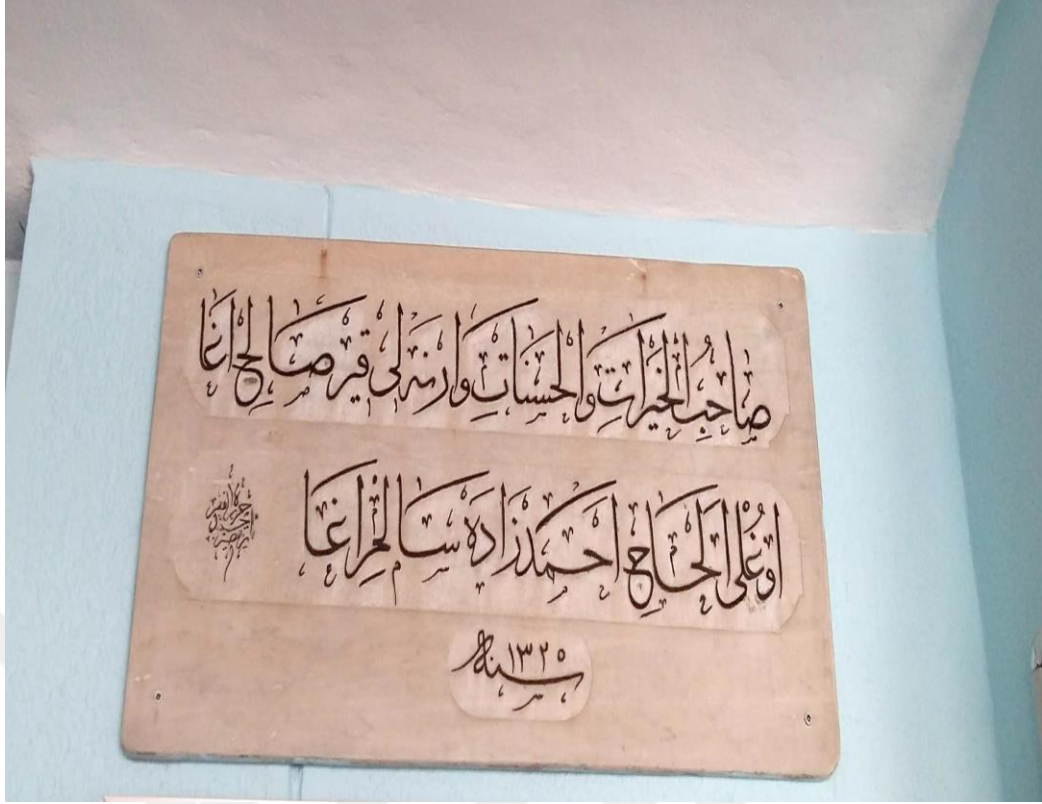 صَاحِبُ الْخَيْرَاتِ وَالْحَسَنَاتِ وَارنه لی قیر صَالِح اغَا
اوغْلی الْحَاج احمَدْ زَادَه سَالِم اغَا
سنه ١٣٢٥